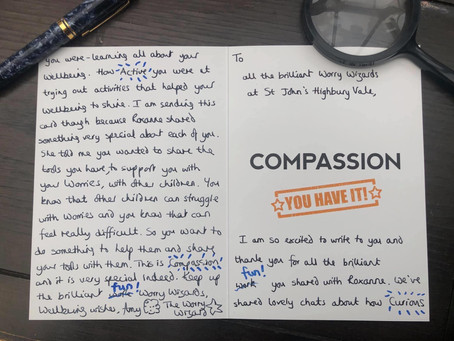 To
all the brilliant Worry Wizards
at St John's Highbury Vale,
COMPASSION
YOU HAVE IT!
I am so excited to write to you and
thank you for all the brilliant
fun!
work you shared with Roxanne. We've
shared lovely chats about how Curious
you were-learning all about your
wellbeing. How Active you were at
trying out activities that helped your
wellbeing to shine. I am sending this
card though because Roxanne shared
something very special about each of you.
She told me you wanted to share the
tools you have, to support you with
your worries, with other children. You
know that other children can struggle
with worries and you know that can
feel really difficult. So you want to
do something to help them and share
your tools with them. This is Compassion
and it is very special indeed. Keep up
fun!
the brilliant work Worry Wizards,
Wellbeing wishes, Amy & The Worry
Wizard